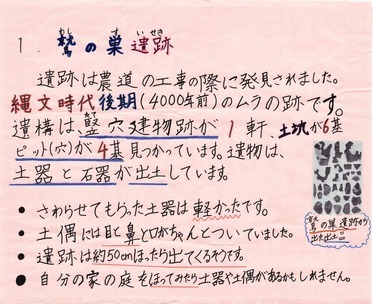 1. 鷲の巣遺跡
わし す いせき
遺跡は農道の工事の際に発見されました。
縄文時代後期(4000年前)のムラの跡です。
遺構は、竪穴建物跡が1軒、土坑が6基
ピット(穴)が4基見つかっています。遺物は、
土器と石器が出土しています。
● さわらせてもらった土器は軽かったです。
● 土偶には目と鼻と口がちゃんとついていました。
● 遺跡は約50cmほったら出てくるそうです。
● 自分の家の庭をほってみたら土器や土偶があるかもしれません。
鷲の巣遺跡から
出た出土品